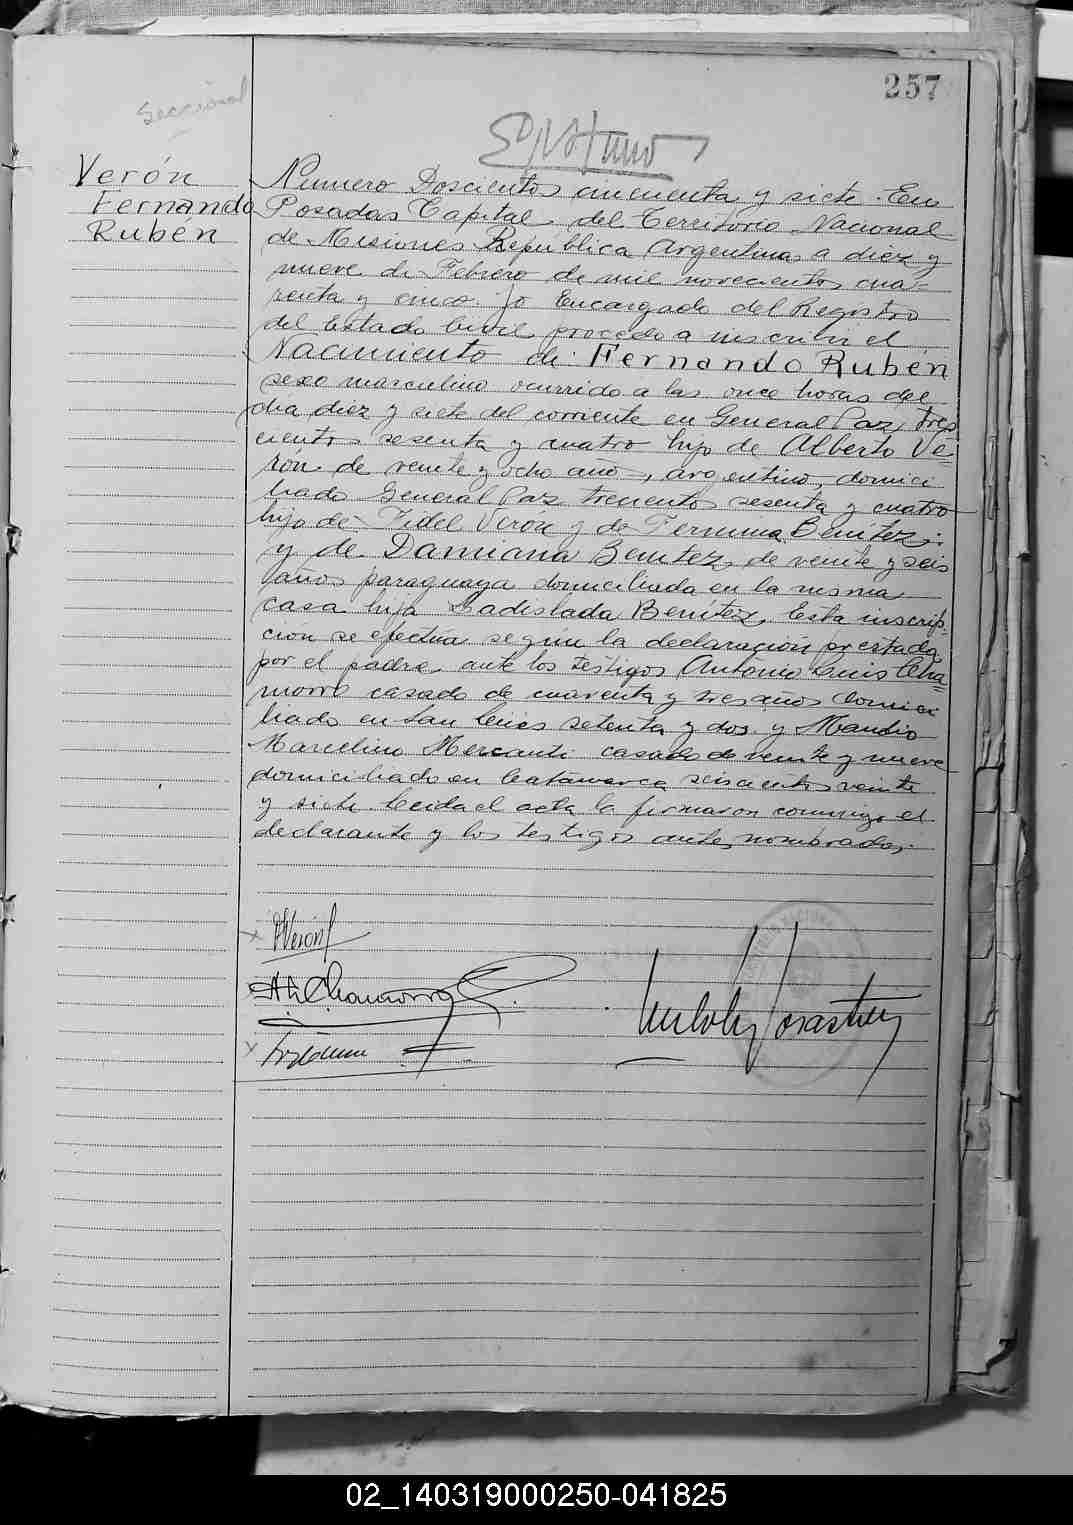 257
Seccional
Verón
Fernando
Rubén
Numero Doscientos cincuenta y siete. En
Posadas Capital del Territorio Nacional
de Misiones Republica Argentina, a diez y
nueve de Febrero de mil novecientos cua-
renta y cinco. Yo Encargado del Registro
del Estado Civil, procedo a inscribir el
Nacimiento de: Fernando Rubén
sexo masculino ocurrido a las once horas del
dia diez y siete del corriente en General Paz, tres
cientos sesenta y cuatro hijo de Alberto Ve-
rón de veinte y ocho años, argentino, domici
liado General Paz trecientos sesenta y cuatro
hijo de Fidel Verón y de Fermina Benítez:
y de Damiana Benitez, de veinte y seis
años paraguaya domiciliada en la misma
casa hija Ladislada Benítez. Esta inscrip-
ción se efectúa según la declaración prestada
por el padre, ante los testigos Antonio Luis Cha=
morro casado de cuarenta y tres años domici
liado en San Luis setenta y dos y
Marcelino Mercanti casado de veinte y nueve
domiciliado en Catamarca seiscientos veinte
y siete. Leida el acta la firmaron conmigo el
declarante y los testigos antes nombrados.
Verón
A. L. Chamorro
02_140319000250-041825